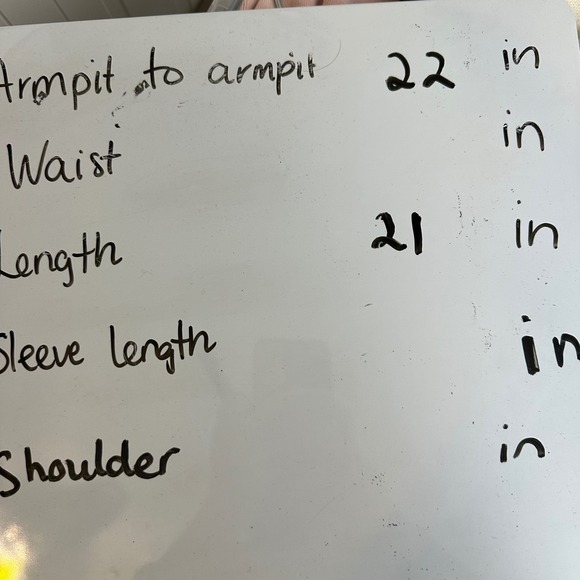 Armpit to armpit 22 in
Waist in
Length 21 in
Sleeve length in
Shoulder in